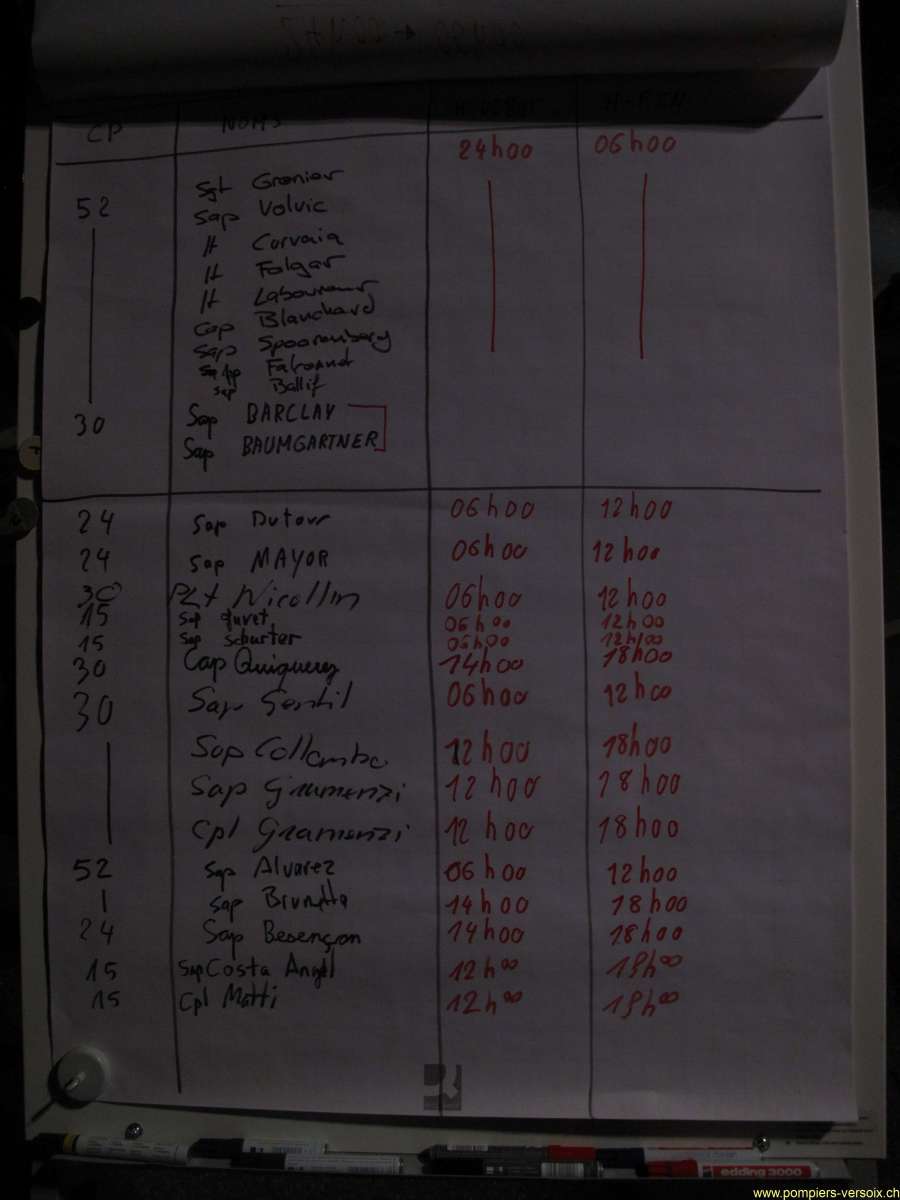 CP NOMS H-DEBUT H-FIN
24h00 06h00
Sgt Grenier
52 Sap Volvic
lt Corvaia
lt Folgar
lt Laboureur
Cap Blanchard
Sap Spoorenberg
Sap
Sap Ballif
30 Sap BARCLAY
Sap BAUMGARTNER
24 Sap Dutour 06h00 12h00
24 Sap MAYOR 06h00 12h00
30 PLT Nicollin 06h00 12h00
15 Sap 06h00 12h00
15 Sap Schurter 06h00 12h00
30 Cap Quiguerez 14h00 18h00
30 Sap Gentil 06h00 12h00
Sap Collombo 12h00 18h00
Sap Gramenzi 12h00 18h00
Cpl Gramenzi 12h00 18h00
52 Sap Alvarez 06h00 12h00
Sap Brunetta 14h00 18h00
24 Sap Besençon 14h00 18h00
15 Sap Costa Angel 12h00 18h00
15 Cpl Motti 12h00 18h00
edding 3000
www.pompiers-versoix.ch